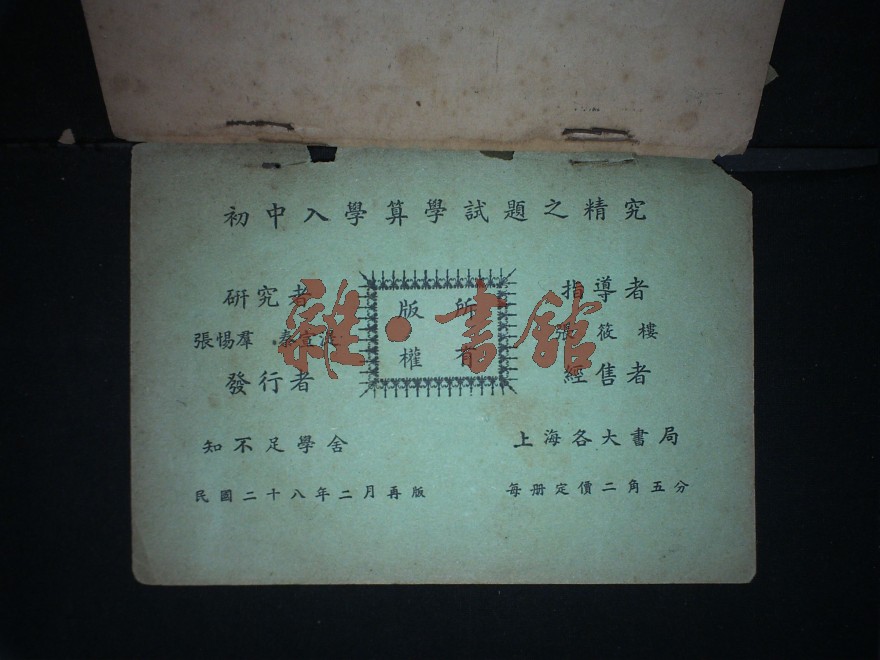 初中入學算學試題之精究
研究者
張惕羣 秦宣
發行者
知不足學舍
民國二十八年二月再版
版所
權有
指導者
張筱樓
經售者
上海各大書局
每册定價二角五分
雜·書館